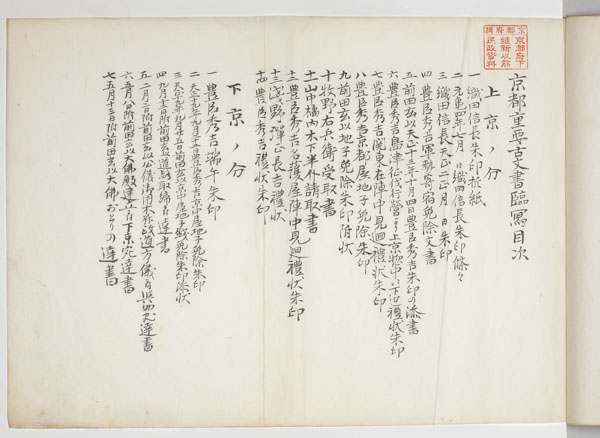 京都重要古書臨写目次
上京ノ分
一織田信長朱印折紙
二元亀四年七月 日織田信長朱印條々
三織田信長天正二正月 日朱印
四豊臣秀吉軍勢寄宿免除文書
五前田玄以天正十三年十月四日豊臣秀吉朱印の添書
六豊臣秀吉島津征伐陣営より上京惣中に下せし禮状朱印
七豊臣秀吉関東在陣中見廻禮状朱印
八豊臣秀吉京都屋地子免除朱印
九前田玄以地子免除朱印附状
十牧野右兵衛受取書
十一山中橘内木下半介請取書
十二豊臣秀吉名護屋陣中見廻禮状朱印
十三浅野弾正長吉禮状
十四豊臣秀吉禮状朱印
下京ノ分
一豊臣秀吉端午朱印
二天正十九年九月廿二日豊臣秀吉京中屋地子免除朱印
三天正十九年九月廿五日前田玄以京中屋地子銭免除朱印添状
四九月十二日附前田玄以道路取締ニ付達書
五二月二日附前田玄以公儀御用木
六五月八日附前田玄以大佛殿建立ニ付下京宛達書
七五月十三日附前田玄以大佛